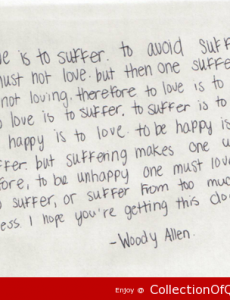 ve is to suffer. to avoid suff
must not love. but then one suffe
not loving. therefore to love is to
o love is to suffer. to suffer is to
happy is to love. to be happy is
ffer. but suffering makes one u
ore, to be unhappy one must love
o suffer, or suffer from too muc
ess. I hope you're getting this do
-Woody Allen.
Enjoy @ CollectionOfQ